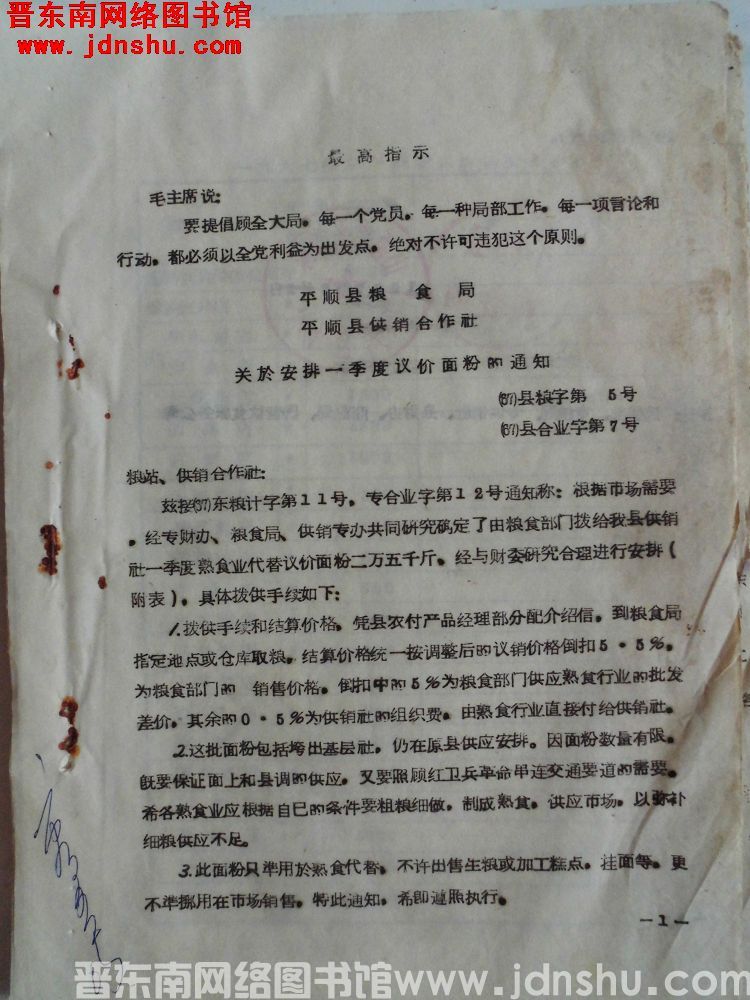 晋东南网络图书馆
www.jdnshu.com
最高指示
毛主席说:
要提倡顾全大局。每一个党员。每一种局部工作。每一项言论和
行动。都必须以全党利益为出发点。绝对不许可违犯这个原则。
平顺县粮 食 局
平顺县供销合作社
关於安排一季度议价面粉的通知
(67)县粮字第 5号
(67)县合业字第7号
粮站、供销合作社:
兹接(67)东粮计字第11号,专合业字第12号通知称:根据市场需要
。经专财办、粮食局、供销专办共同研究确定了由粮食部门拨给我县供销
社一季度熟食业代替议价面粉二万五千斤。经与财委研究合理进行安排(
附表)。具体拨供手续如下:
1.拨供手续和结算价格。凭县农付产品经理部分配介绍信。到粮食局
指定地点或仓库取粮。结算价格统一按调整后的议销价格倒扣5·5%。
为粮食部门的 销售价格。倒扣中的5%为粮食部门供应熟食行业的批发
差价。其余的0·5%为供销社的组织费。由熟食行业直接付给供销社。
2.这批面粉包括垮出基层社。仍在原县供应安排。因面粉数量有限。
既要保证面上和县调的供应。又要照顾红卫兵革命串连交通要道的需要。
希各熟食业应根据自已的条件要粗粮细做。制成熟食。供应市场。以弥补
细粮供应不足。
3.此面粉只準用於熟食代替。不许出售生粮或加工糕点。挂面等。更
不準挪用在市场销售。特此通知。希即遵照执行。
—1—
晋东南网络图书馆www.jdnshu.com